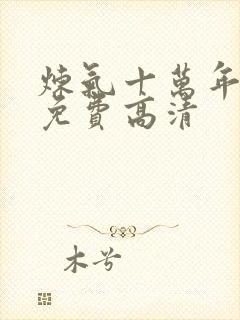 煉氣十萬年
免費高清
木兮